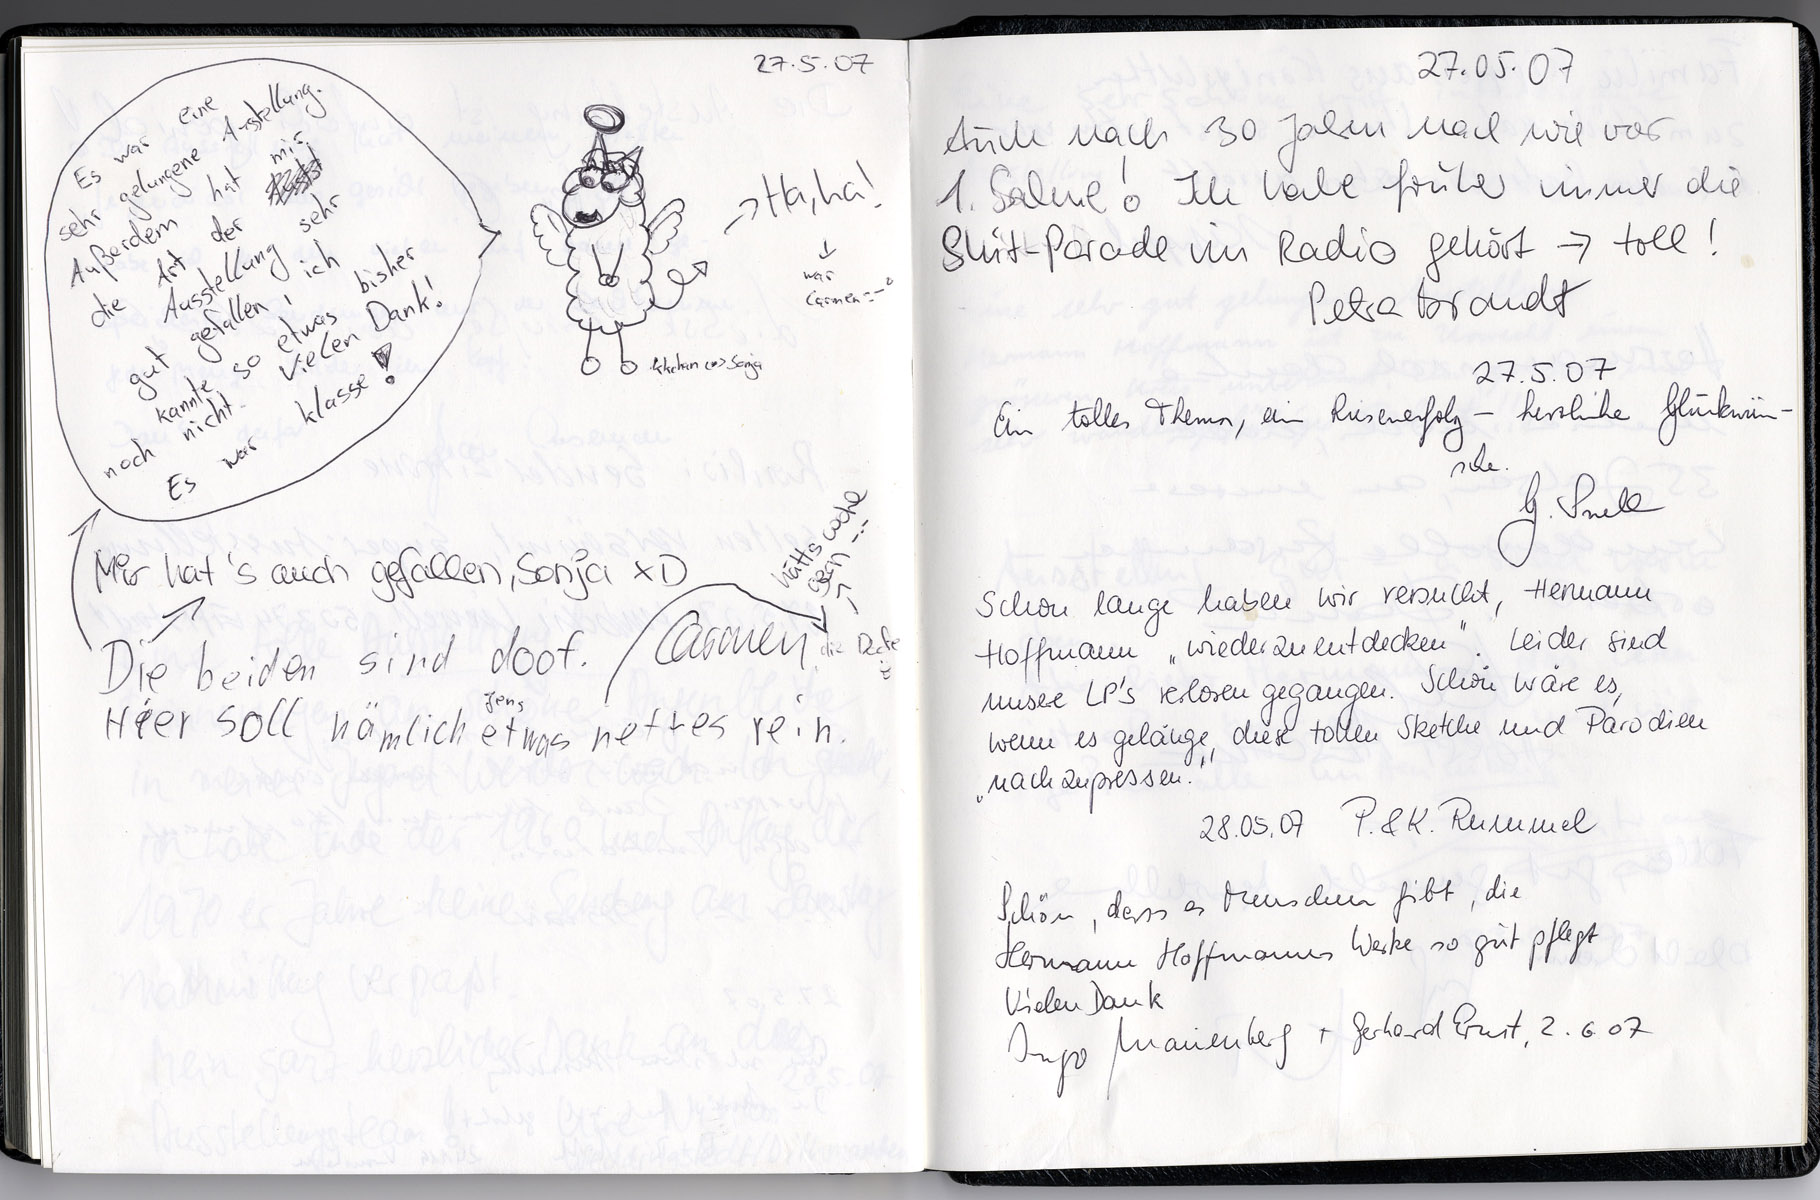 27.5.07
Es war eine
sehr gelungene Ausstellung.
Außerdem hat mir
die Art der
Ausstellung sehr
gut gefallen! ich
kannte so etwas bisher
noch nicht. Vielen Dank!
Es war klasse!
Ha, ha!
war
Carmen
Sonja
Mir hat's auch gefallen, Sonja xD
Die beiden sind doof. Carmen
Hier soll nämlich etwas nettes rein.
27.05.07
Auch nach 30 Jahren nach wie vor
1. Sahne! Ich habe früher immer die
Shit-Parade im Radio gehört → toll!
Petra Brandt
27.5.07
Ein tolles Thema, ein Riesenerfolg – herzliche Glückwün-
sche.
Schon lange haben wir versucht, Hermann
Hoffmann „wiederzuentdecken". Leider sind
unsere LP's verloren gegangen. Schön wäre es,
wenn es gelänge, diese tollen Sketche und Parodien
„nachzupressen."
28.05.07 P. & K. Rummel
Schön, dass es Menschen gibt, die
Hermann Hoffmanns Werke so gut pflegt
Vielen Dank
Ingo Marienberg + Gerhard Ernst, 2.6.07